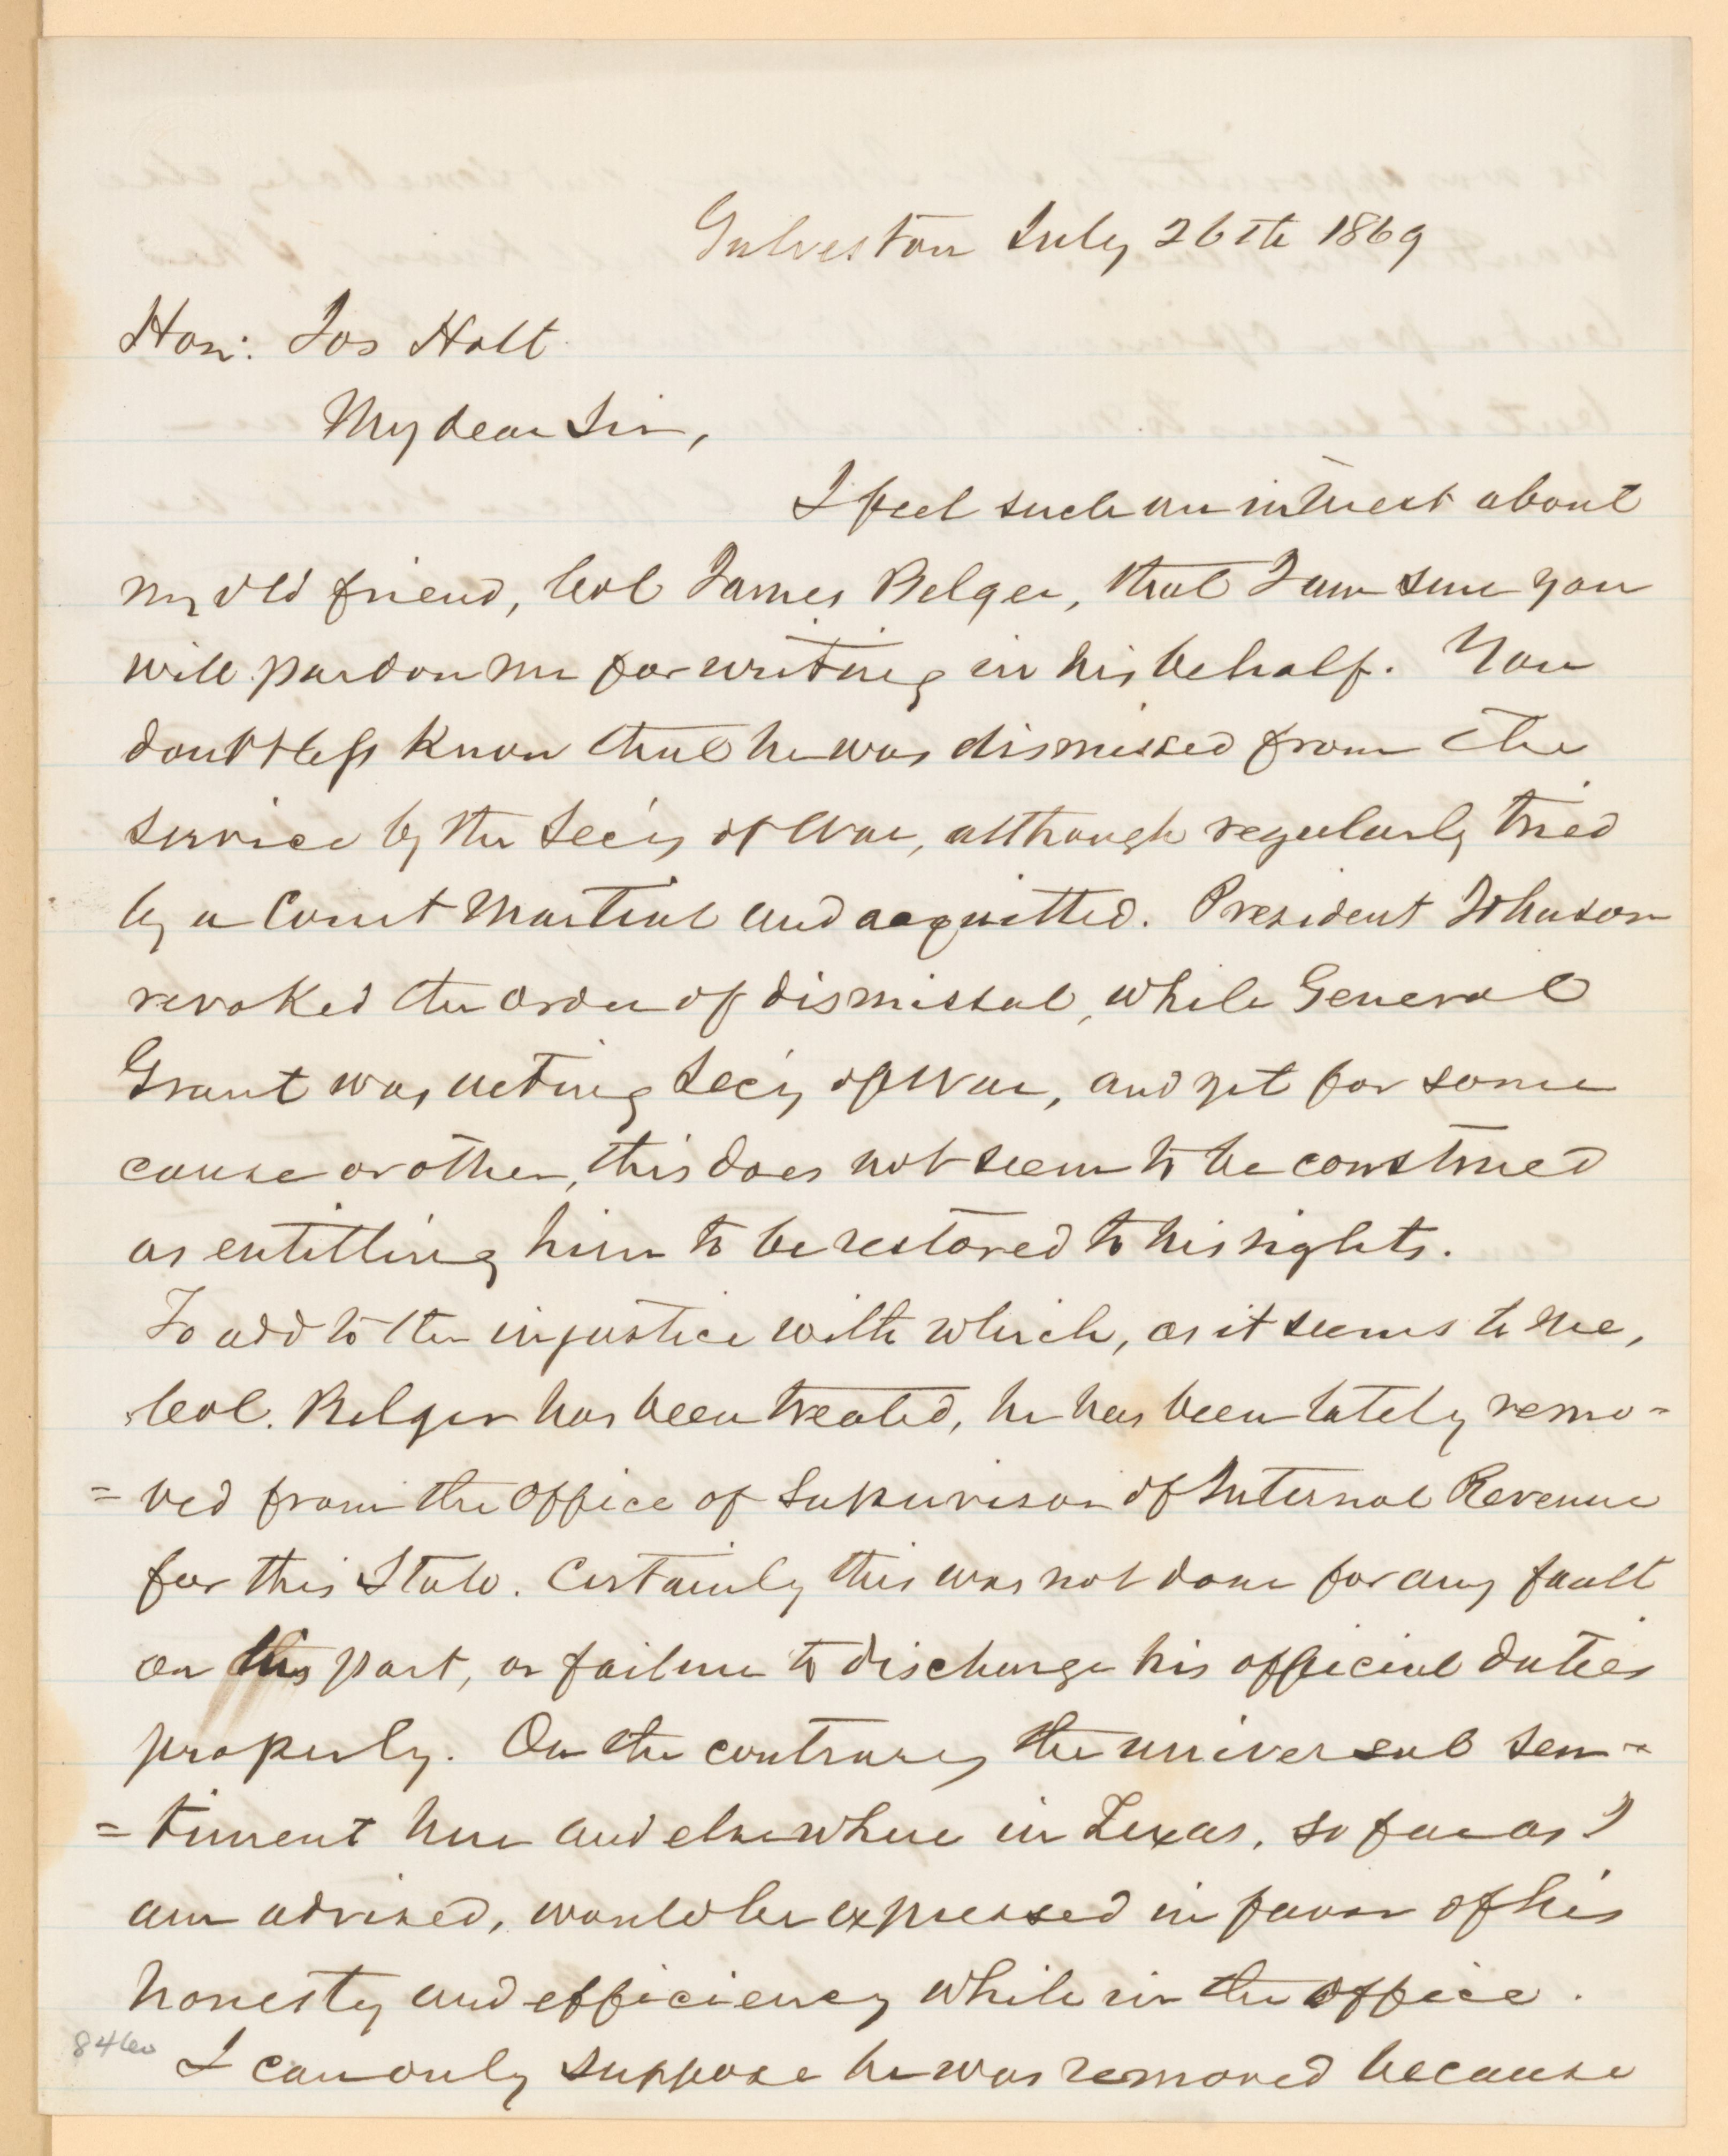 Galveston July 26th 1869
Hon: Jos Holt
My dear Sir,
I feel such an interest about
my old friend, Col James Belger, that I am sure you
will pardon me for writing in his behalf. You
doubtless know that he was dismissed from the
service by the Sec'y of War, although regularly tried
by a Court Martial and acquitted. President Johnson
revoked the order of dismissal, while General
Grant was acting Sec'y of War, and yet for some
cause or other, this does not seem to be construed
as entitling him to be restored to his rights.
To add to the injustice with which, as it seems to me,
Col. Belger has been treated, he has been lately remo=
=ved from the office of Supervisor of Internal Revenue
for this State. Certainly this was not done for any fault
on his part, or failure to discharge his official duties
properly. On the contrary the universal sen=
=timent here and elsewhere in Texas, so far as I
am advised, would be expressed in favor of his
honesty and efficiency while in the office.
I can only suppose he was removed because